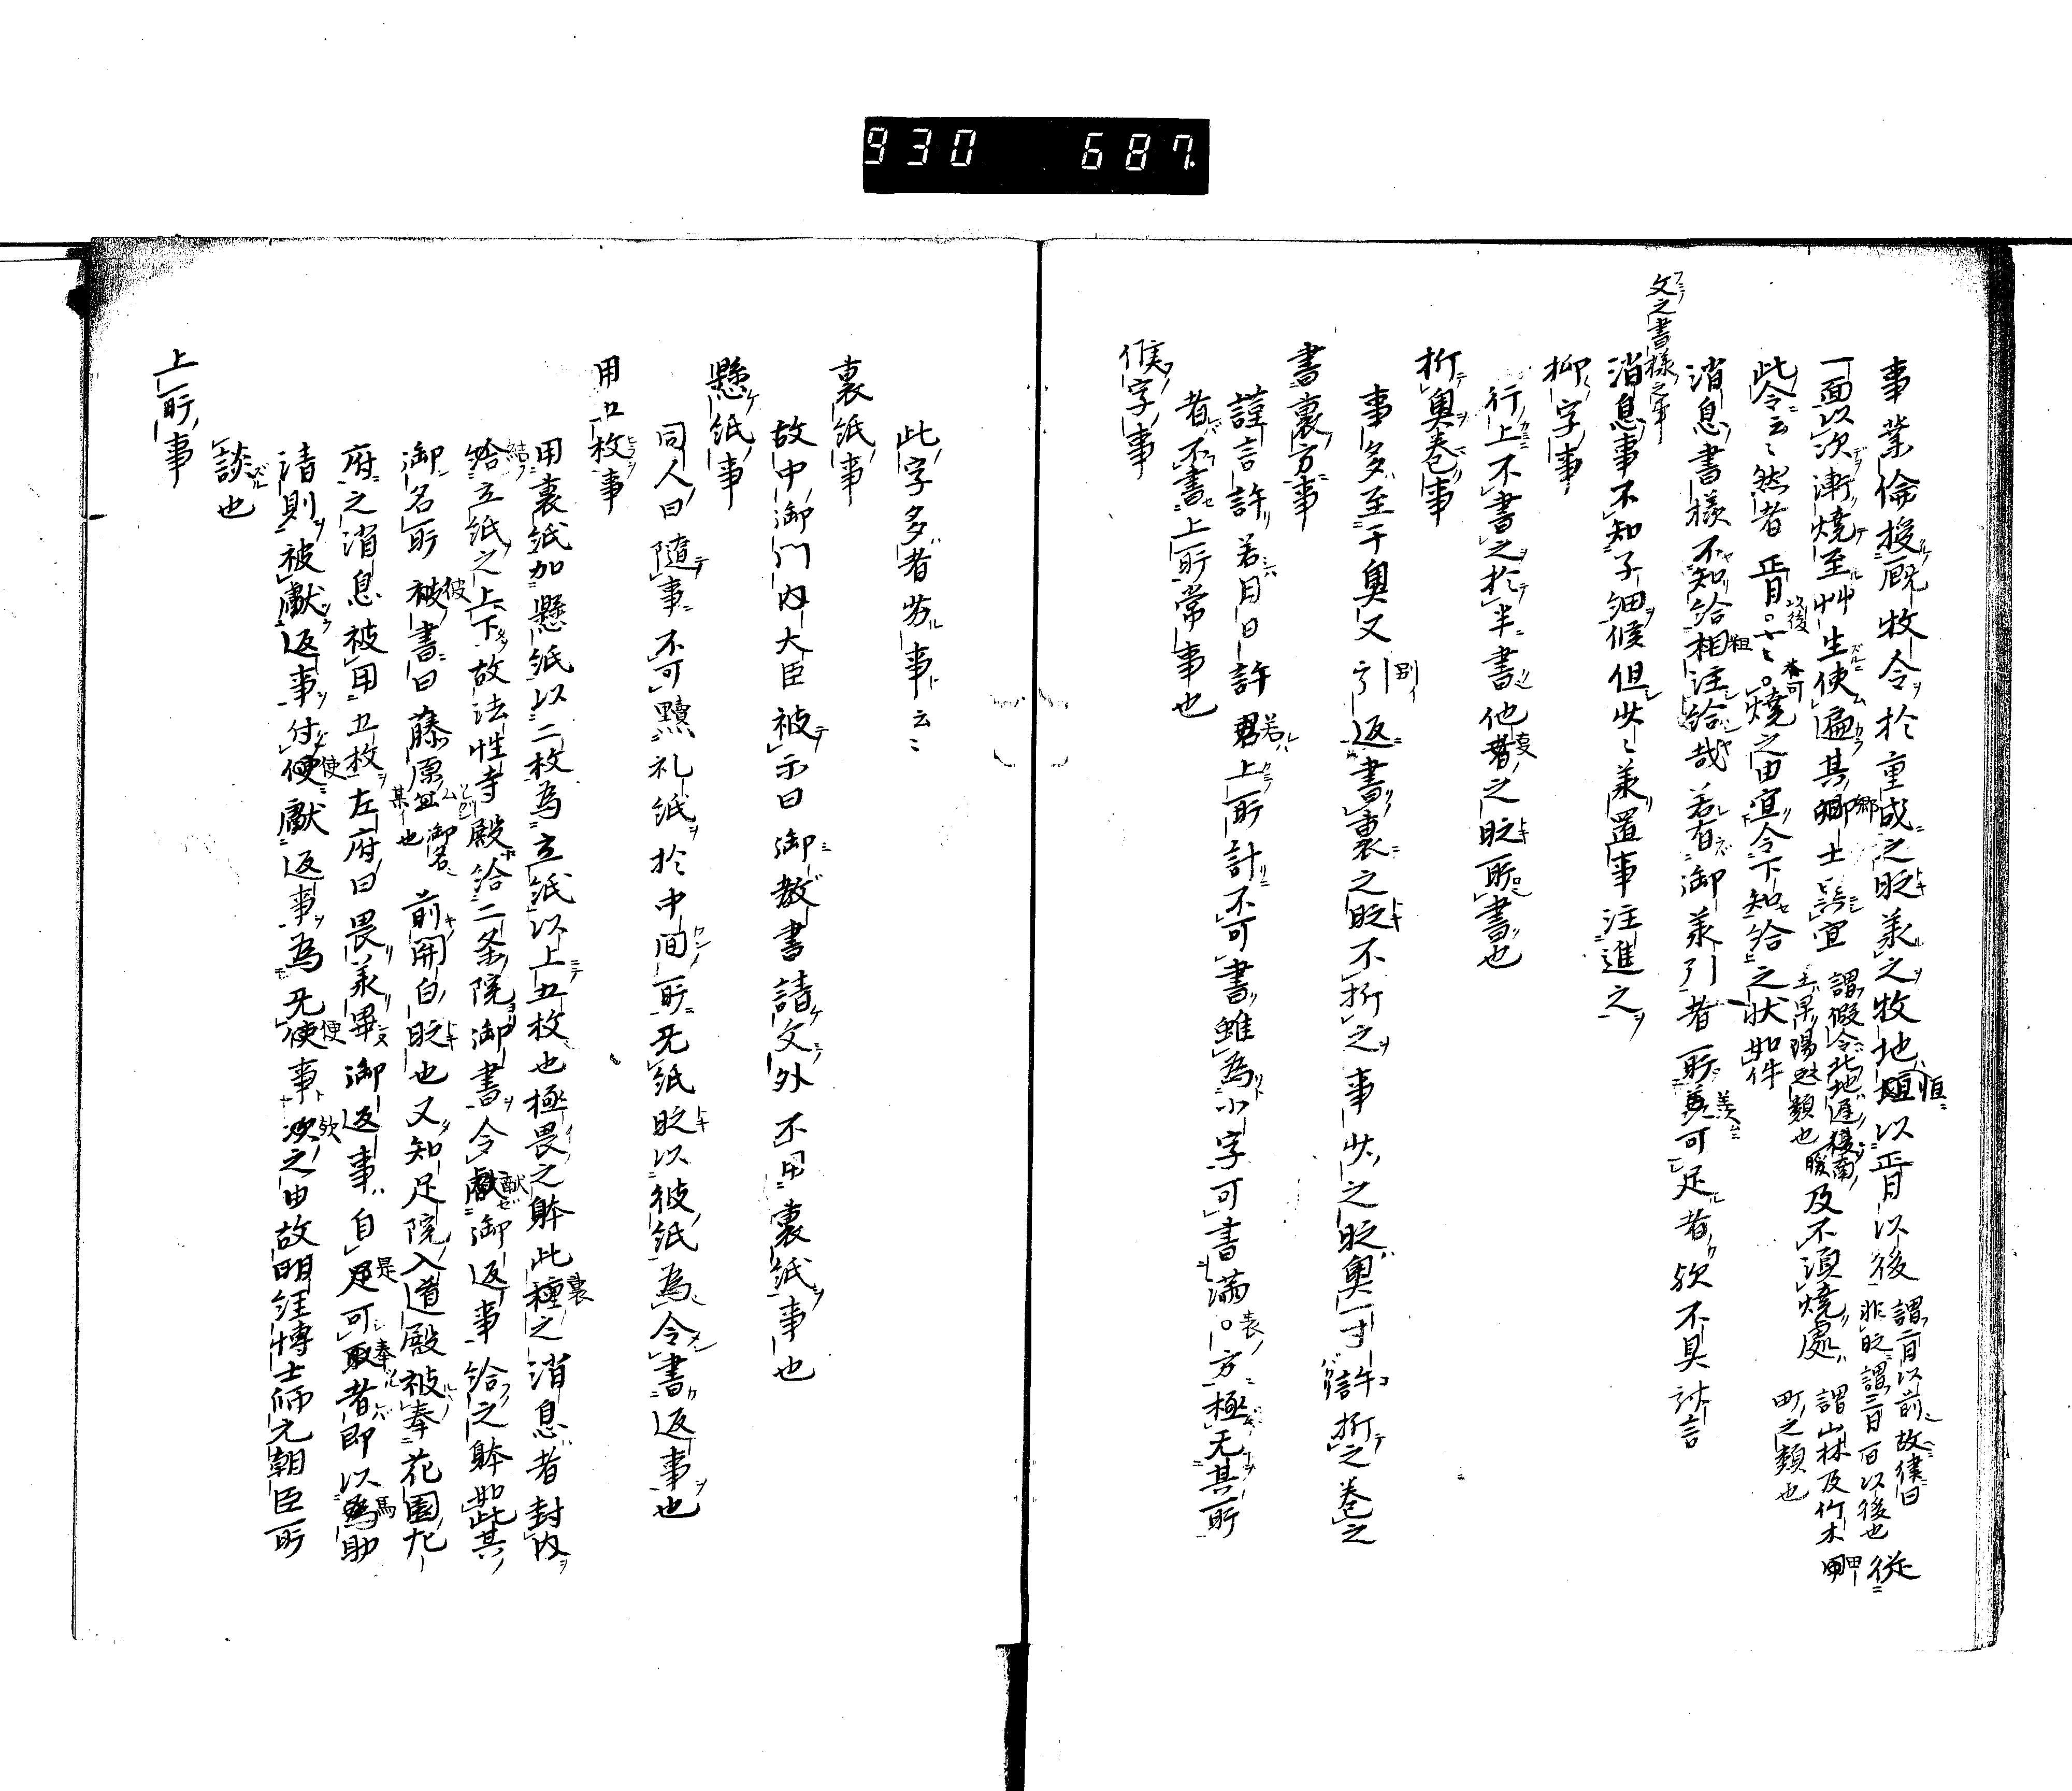 930 687
事業倫授厩牧令於重成之時兼之牧地恒以正月以後 謂二月以前故律曰非時謂三月一日以後也 従
一面以次漸焼至艸生使遍其郷土異宜 謂假令北地遅後南土早陽尅類也暖 及不須焼處 謂山林及竹木甲町之類也
此令云々然者正月以後云々不可焼之由宜令下知給之状如件
消息書様不知給粗注給哉若有御兼引者所羨可足者歟不具謹言
文之書様之事
消息事不知子細候但少々兼置事注進之
抑字事
行上不書之於半書他裏之時所書也
折奥巻事
事多至于奥又引返書裏之時不折之事少之時奥一寸許折之巻之
書裏方事
謹言許若月日許若上所計不可書雖為小字可書満裏方極无其所
者不書上所常事也
候字事
此字多者劣事云々
裏紙事
故中御門内大臣被示曰御教書請文外不用裏紙事也
懸紙事
同人曰随事不可黷礼紙於中間所无紙時以彼紙為令書返事也
用五枚事
用裏紙加懸紙以二枚為立紙以上五枚也極畏之躰此裏之消息者封内
結立紙之上下故法性寺殿給二条院御書令献御返事給之躰如此其
御名所被書曰藤原某 御名也 前関白時也又知足院入道殿被奉花園左
府之消息被用五枚左府曰畏兼畢御返事自是可奉者即以馬助
清則被献返事付使献返事為无便事歟之由故明経博士師元朝臣所
談也
上所事